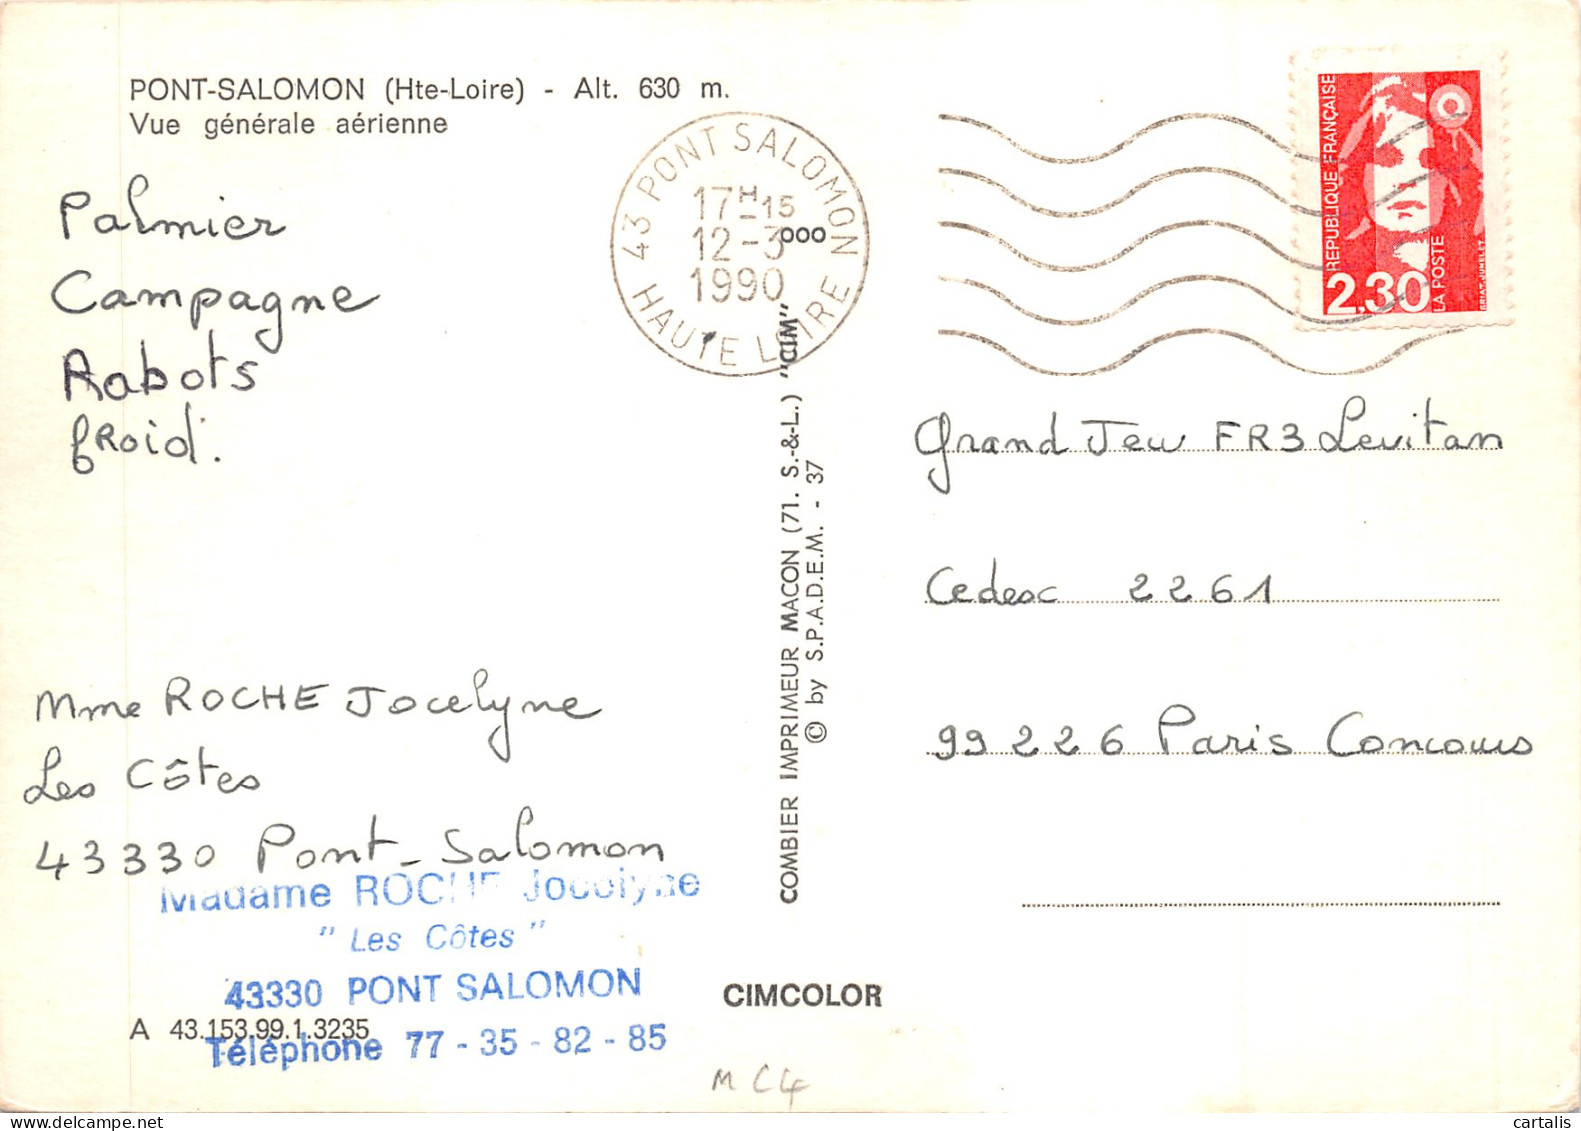 PONT-SALOMON (Hte-Loire) - Alt. 630 m.
Vue générale aérienne
Palmier
Campagne
Rabots
froid.
Mme ROCHE Jocelyne
Les Côtes
43330 Pont-Salomon
Madame ROCHE Jocelyne
" Les Côtes "
43330 PONT SALOMON
Téléphone 77 - 35 - 82 - 85
A 43.153.99.1.3235
43 PONT SALOMON
17H15
12-3
1990
HAUTE LOIRE
000
COMBIER IMPRIMEUR MACON (71. S.-&-L.) "CIM"
© by S.P.A.D.E.M. - 37
CIMCOLOR
M C4
REPUBLIQUE FRANÇAISE
2,30
LA POSTE
BRIAT-JUMELET
Grand Jeu FR3 Levitan
Cedesc 2261
99226 Paris Concours
cartalis